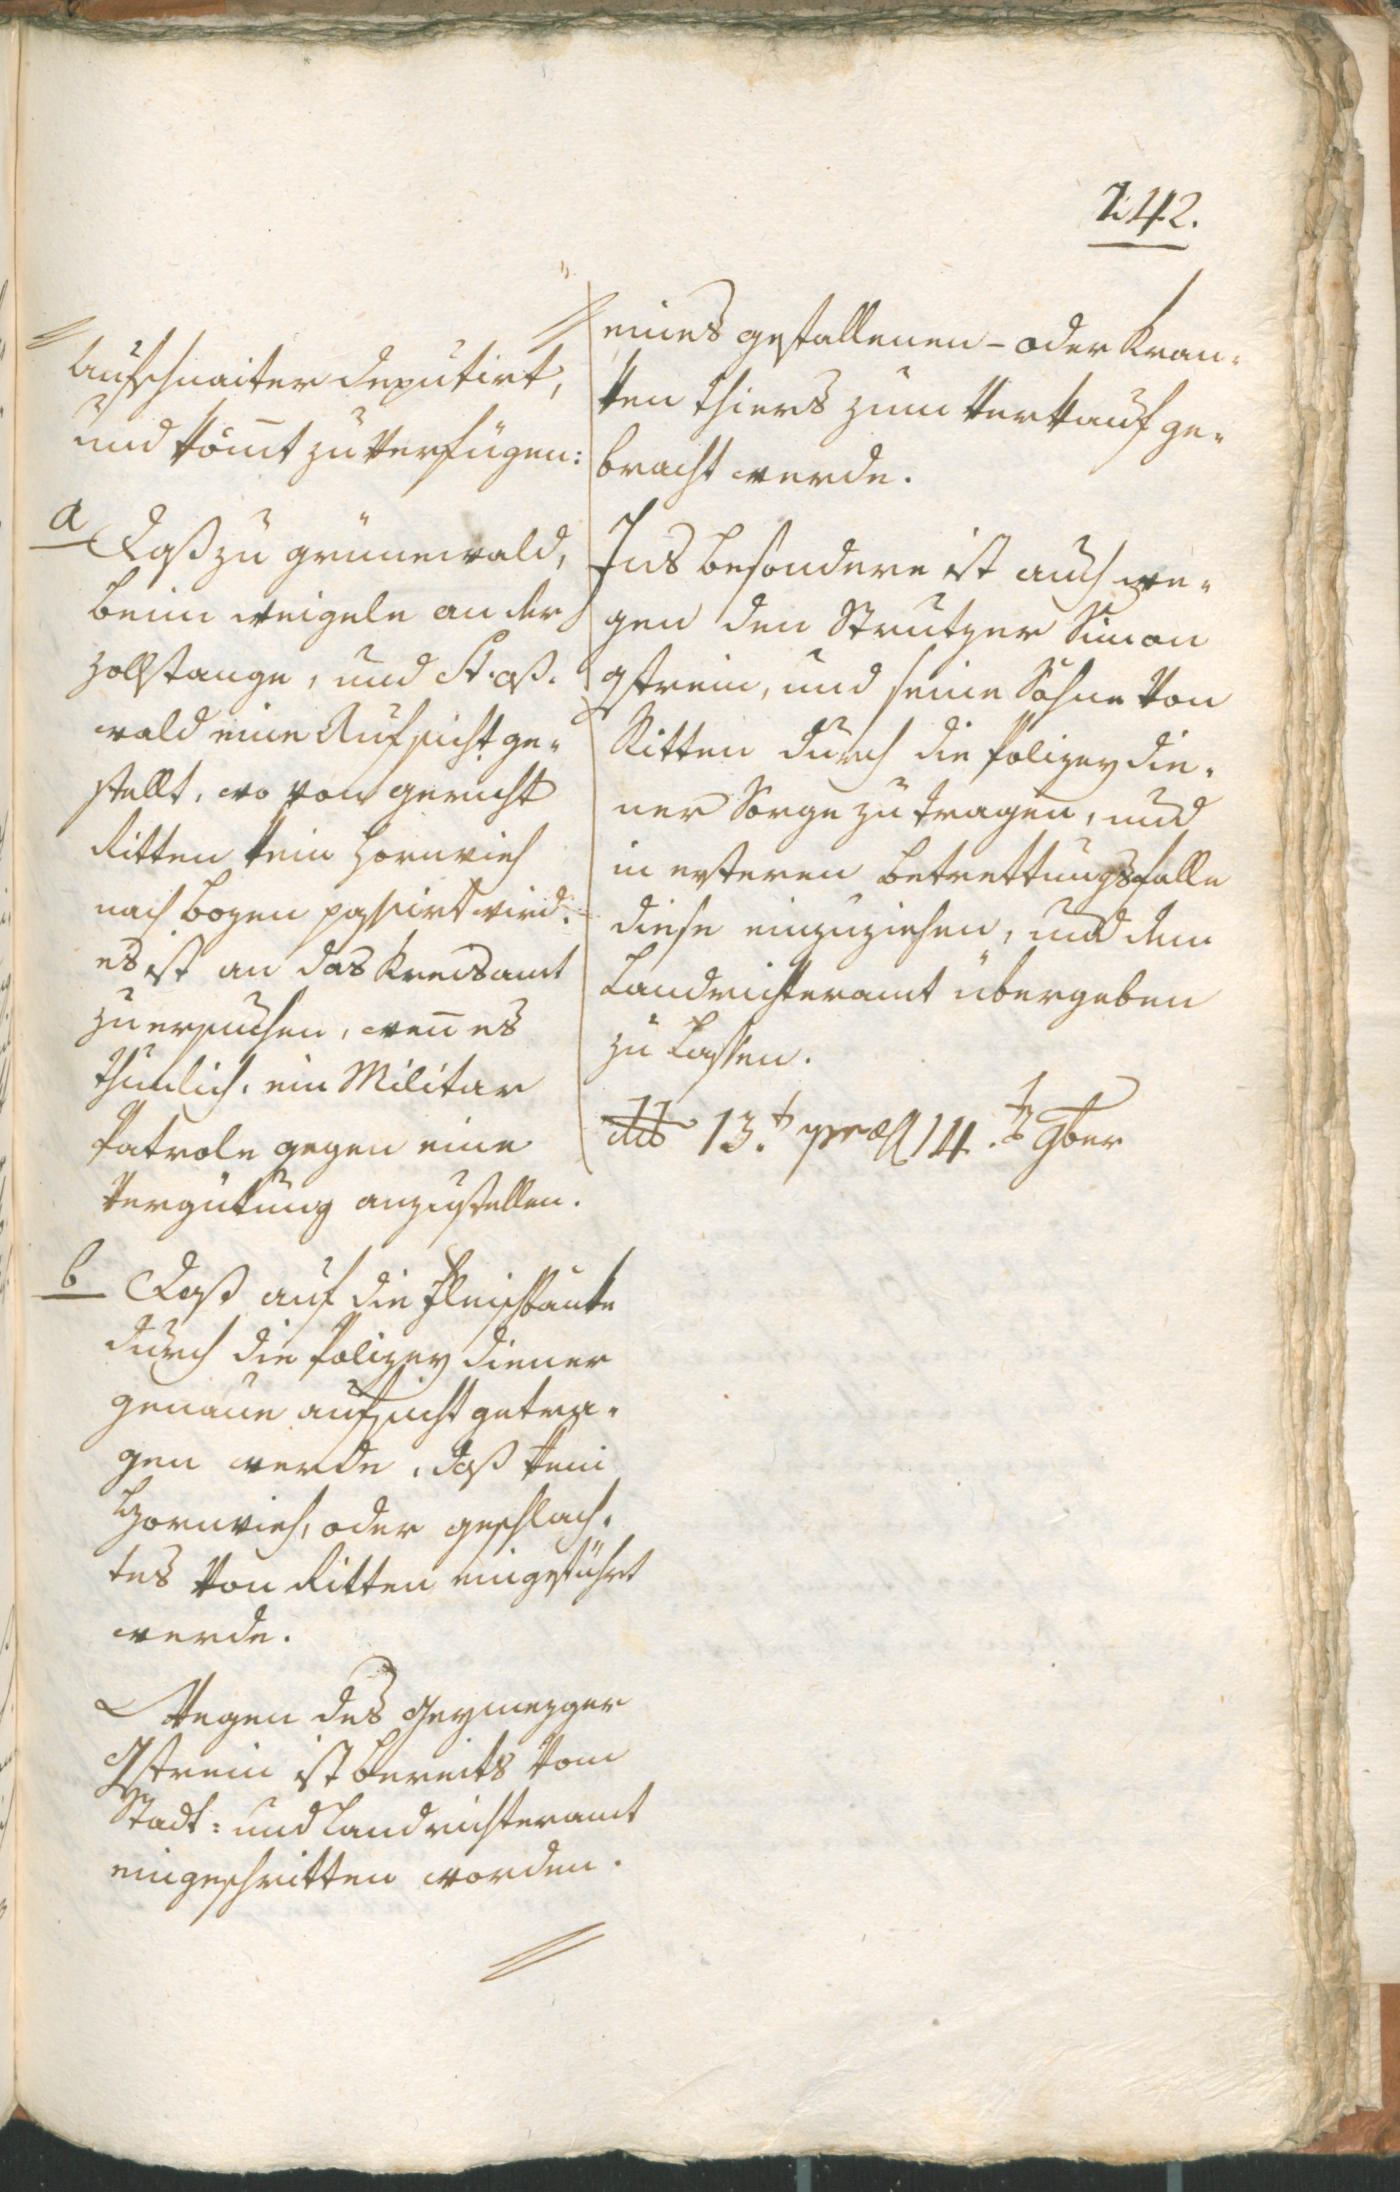 242.
Aufschnaiter deputirt,
und kom̅t zu verfügen:
a Daß zu grünewald,
beim weigele an der
Zollstange, und
wald eine Aufsicht ge-
stellt, wo vom gericht
Ritten kein Hornvieh
nach Bozen passirt wird.
es ist an das Kreisamt
zu ersuchen, wen̅ es
thunlich, ein Militar
Patrole gegen eine
Vergütung anzustellen.
b Daß auf die Fleischbänke
durch die Polizey diener
genaue aufsicht getra-
gen werde, daß kein
Hornvieh, oder geschlach-
tes von Ritten eingeführt
werde.
Wegen des Geymezger
Gstrein ist bereits vom
Stadt- und Landrichteramt
eingeschritten worden.
eines gefallenen - oder kran-
ken thiers zum verkauf ge-
bracht werde.
Ins besondere ist auch we-
gen den Strutzer Simon
gstrein, und seine Söhne von
Ritten durch die Polizey die-
ner Sorge zu tragen, und
in ersteren betrettungsfalle
diese einzuziehen, und dem
Landrichteramt übergeben
zu lassen.
dd 13. t præs 14. t 9ber